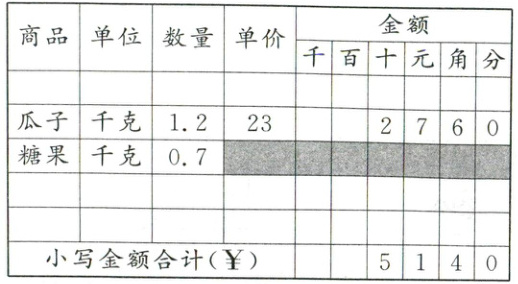 商品 单位 数量 单价 金额
千 百 十 元 角 分
瓜子 千克 1.2 23 2 7 6 0
糖果 千克 0.7
小写金额合计(¥) 5 1 4 0